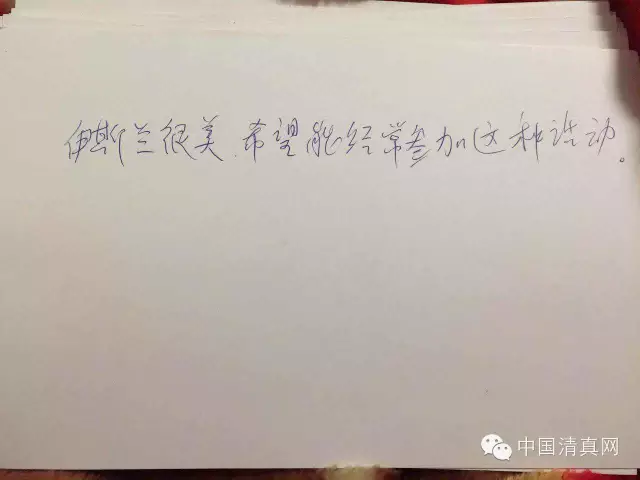 伊斯兰很美.希望能经常参加这种活动。
中国清真网